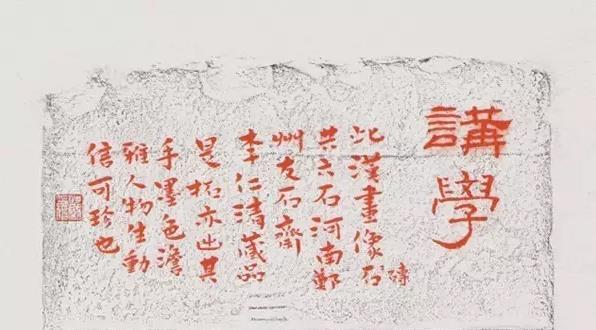 講學
此漢畫像石磚
共六石河南鄭
州友石齋
李仁清藏品
是拓亦出其
手墨色澹
雅人物生動
信可珍也